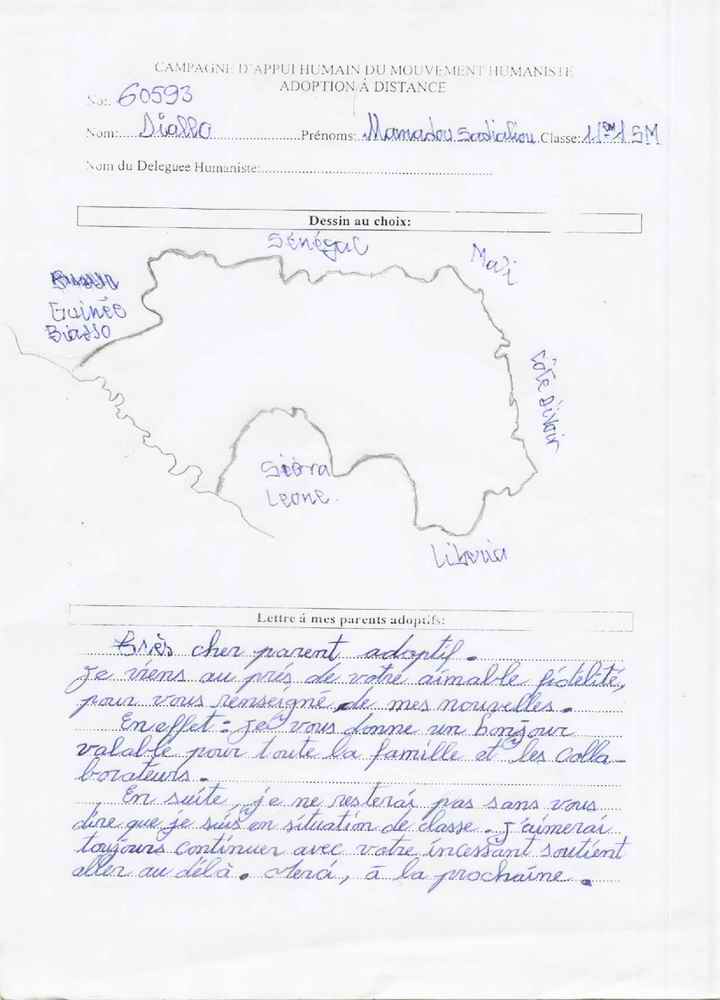 CAMPAGNE D'APPUI HUMAIN DU MOUVEMENT HUMANISTE
ADOPTION À DISTANCE
No: 60593
Nom: Diallo Prénoms: Mamadou Sadialiou Classe: 11ème SM
Nom du Deleguee Humaniste:
Dessin au choix:
Sénégal
Mali
Guinée
Biasso
Côte D'ivoir
Sièrra
Leone.
Liberia
Lettre á mes parents adoptifs:
Très cher parent adoptif.
Je viens au prés de votre aimable fidélité,
pour vous renseigné de mes nouvelles.
En effet: je vous donne un bonjour
valable pour toute la famille et les colla-
borateurs.
En suite, je ne resterai pas sans vous
dire que je suis en situation de classe. J'aimerai
toujours continuer avec votre incessant soutient
aller au délà. Merci, à la prochaine.